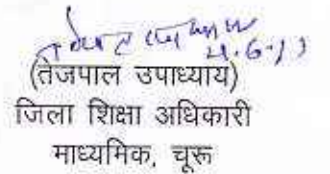 21.6.13
(तेजपाल उपाध्याय)
जिला शिक्षा अधिकारी
माध्यमिक, चूरू